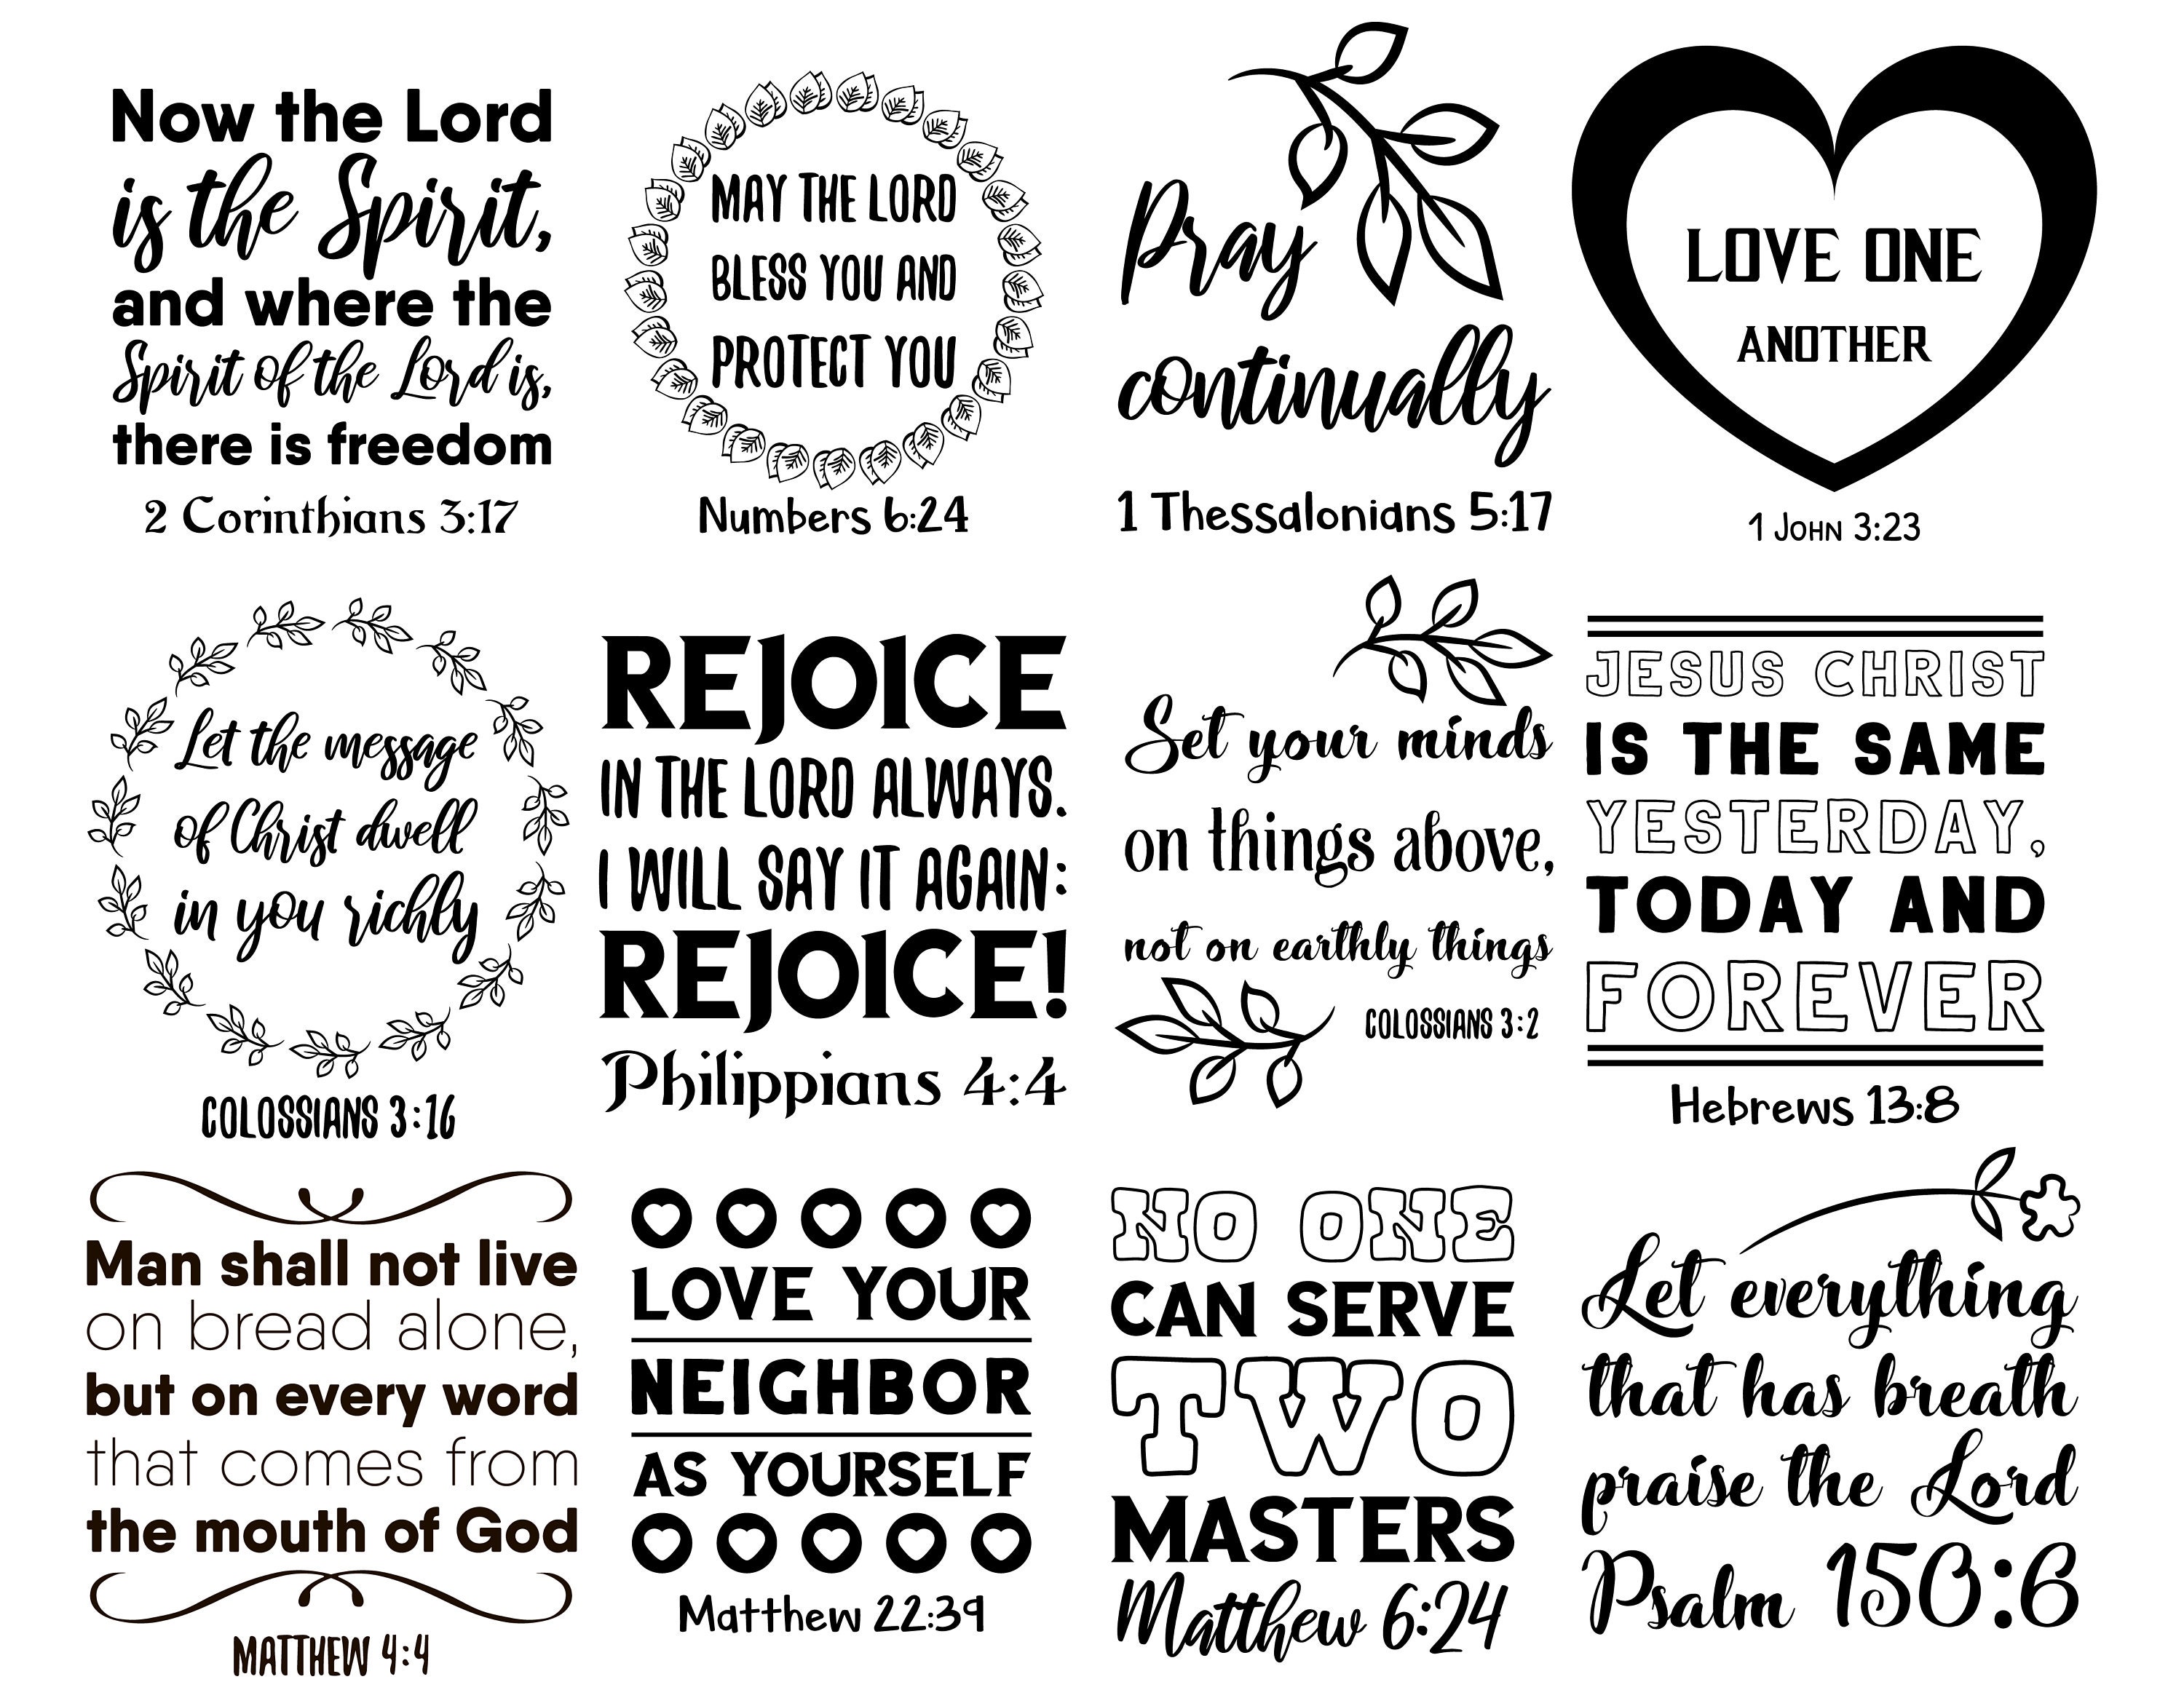 Now the Lord
is the Spirit,
and where the
Spirit of the Lord is,
there is freedom
2 Corinthians 3:17
MAY THE LORD
BLESS YOU AND
PROTECT YOU
Numbers 6:24
Pray
continually
1 Thessalonians 5:17
LOVE ONE
ANOTHER
1 JOHN 3:23
Let the message
of Christ dwell
in you richly
COLOSSIANS 3:16
REJOICE
IN THE LORD ALWAYS.
I WILL SAY IT AGAIN:
REJOICE!
Philippians 4:4
Set your minds
on things above,
not on earthly things
COLOSSIANS 3:2
JESUS CHRIST
IS THE SAME
YESTERDAY,
TODAY AND
FOREVER
Hebrews 13:8
Man shall not live
on bread alone,
but on every word
that comes from
the mouth of God
MATTHEW 4:4
LOVE YOUR
NEIGHBOR
AS YOURSELF
Matthew 22:39
NO ONE
CAN SERVE
TWO
MASTERS
Matthew 6:24
Let everything
that has breath
praise the Lord
Psalm 150:6